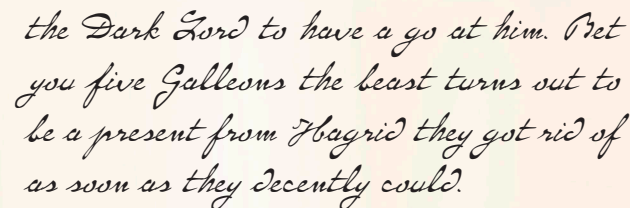 the Dark Lord to have a go at him. Bet
you five Galleons the beast turns out to
be a present from Hagrid they got rid of
as soon as they decently could.